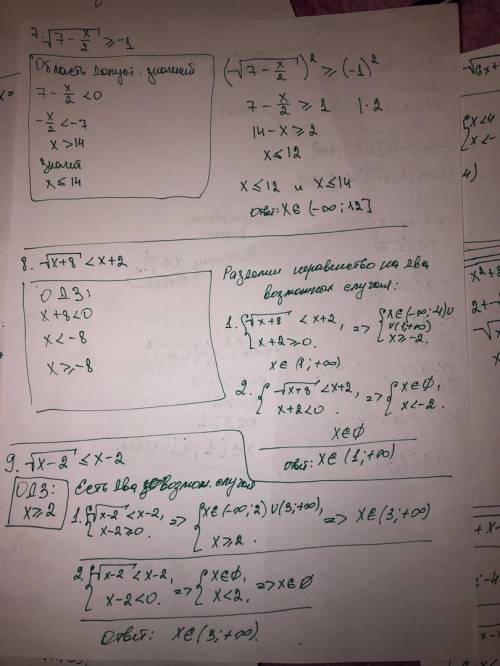 7. √(7 - x/2) ≥ -1
Область допуст. значений
7 - x/2 < 0
-x/2 < -7
x > 14
Значит
x ≤ 14
(√(7 - x/2))² ≥ (-1)²
7 - x/2 ≥ 1 | · 2
14 - x ≥ 2
x ≤ 12
x ≤ 12 и x ≤ 14
Ответ: x ∈ (-∞; 12]
8. √(x+8) < x+2
ОДЗ:
x+8 < 0
x < -8
x ≥ -8
Разделим неравенство на два
возможных случая:
1. { √(x+8) < x+2, => { x ∈ (-∞; -4) ∪
∪ (1; +∞)
x+2 ≥ 0. x ≥ -2.
x ∈ (1; +∞)
2. { √(x+8) < x+2, => { x ∈ ∅,
x+2 < 0. x < -2.
x ∈ ∅
Ответ: x ∈ (1; +∞)
9. √(x-2) ≤ x-2
ОДЗ:
x ≥ 2
Есть два возможн. случая
1. { √(x-2) < x-2, => { x ∈ (-∞; 2) ∪ (3; +∞), => x ∈ (3; +∞)
x-2 ≥ 0. x ≥ 2.
2. { √(x-2) < x-2, => { x ∈ ∅, => x ∈ ∅
x-2 < 0. x < 2.
Ответ: x ∈ (3; +∞).